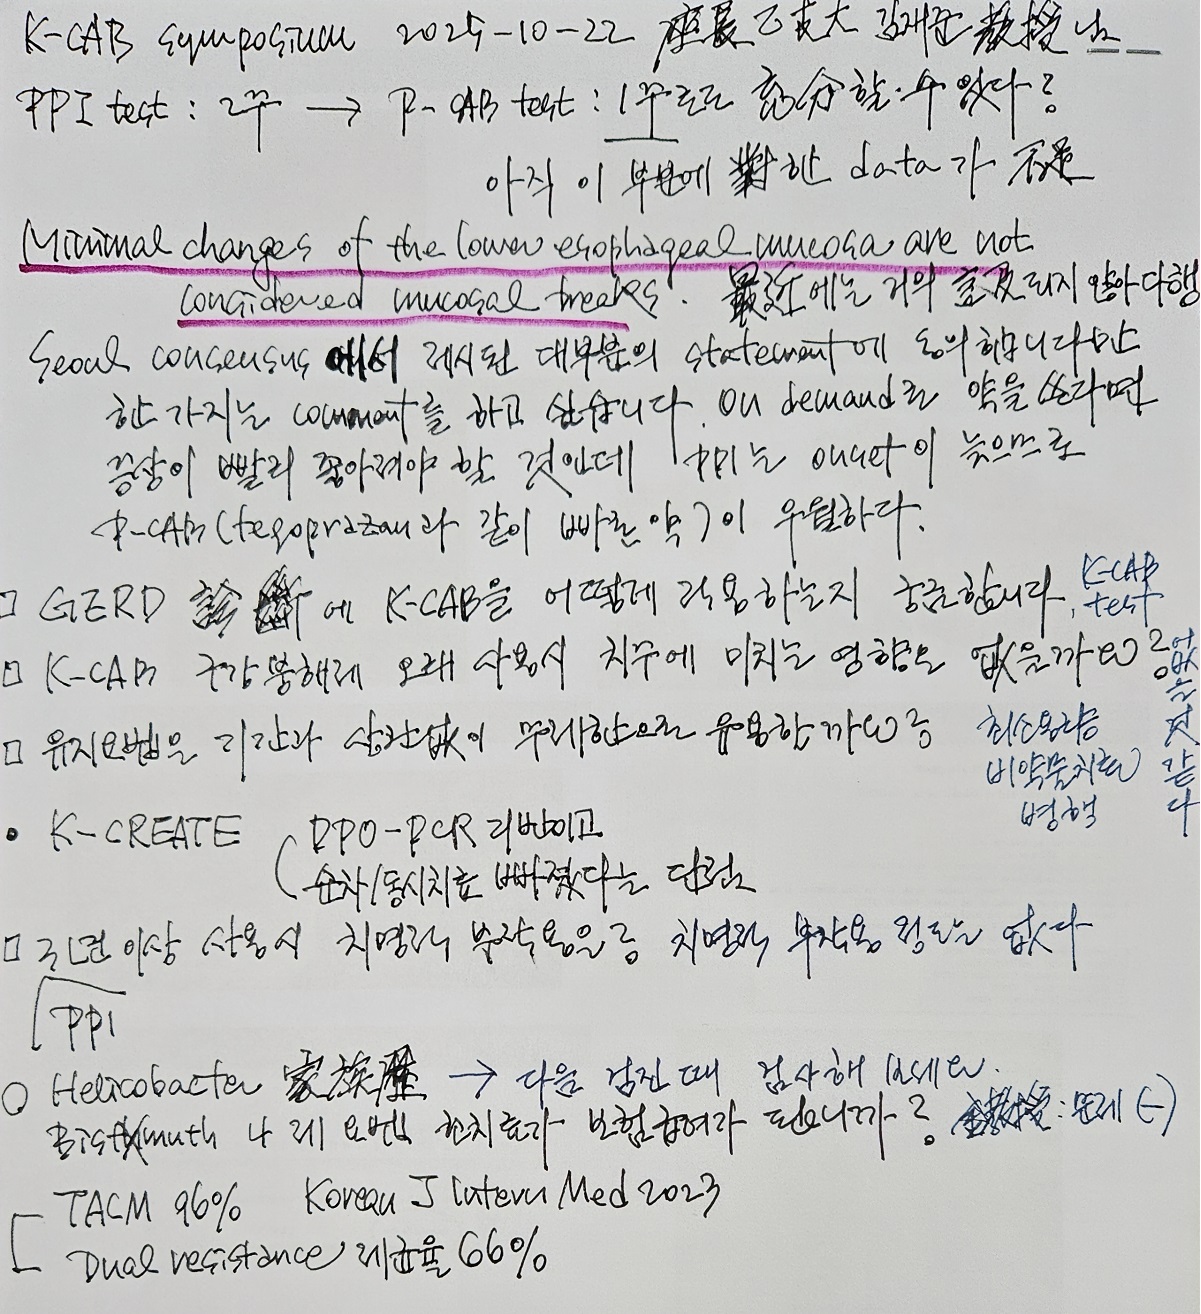 K-CAB symposium 2025-10-22 座長 乙支大 김재준 敎授님
PPI test : 2주 → P-CAB test : 1주로도 充分할 수 있다?
아직 이 부분에 對한 data가 不足
Minimal changes of the lower esophageal mucosa are not
considered mucosal breaks. 最近에는 거의 言及되지 않아 다행
Seoul consensus에서 제시된 대부분의 statement에 동의합니다만
한 가지는 comment를 하고 싶습니다. On demand로 약을 쓰려면
증상이 빨리 좋아져야 할 것인데 PPI는 onset이 늦으므로
P-CAB (tegoprazan과 같이 빠른 약)이 우월하다.
□ GERD 診斷에 K-CAB을 어떻게 적용하는지 궁금합니다. K-CAB test
□ K-CAB 구강붕해제 오래 사용시 치주에 미치는 영향은 없을까요? 없을 것 같다
□ 유지요법은 기간과 상관없이 무제한으로 유용할까요? 최소용량 비약물치료 병행
• K-CREATE DPO-PCR 기반이고
순차/동시치료 빠졌다는 단점
□ 3년 이상 사용시 치명적 부작용은? 치명적 부작용 정도는 없다
PPI
○ Helicobacter 家族歷 → 다음 검진 때 검사해 보세요.
Bismuth 4제 요법 1차치료가 보험급여가 되오니까? 敎授 : 문제 (-)
TACM 96% Korean J Intern Med 2023
Dual resistance 제균율 66%